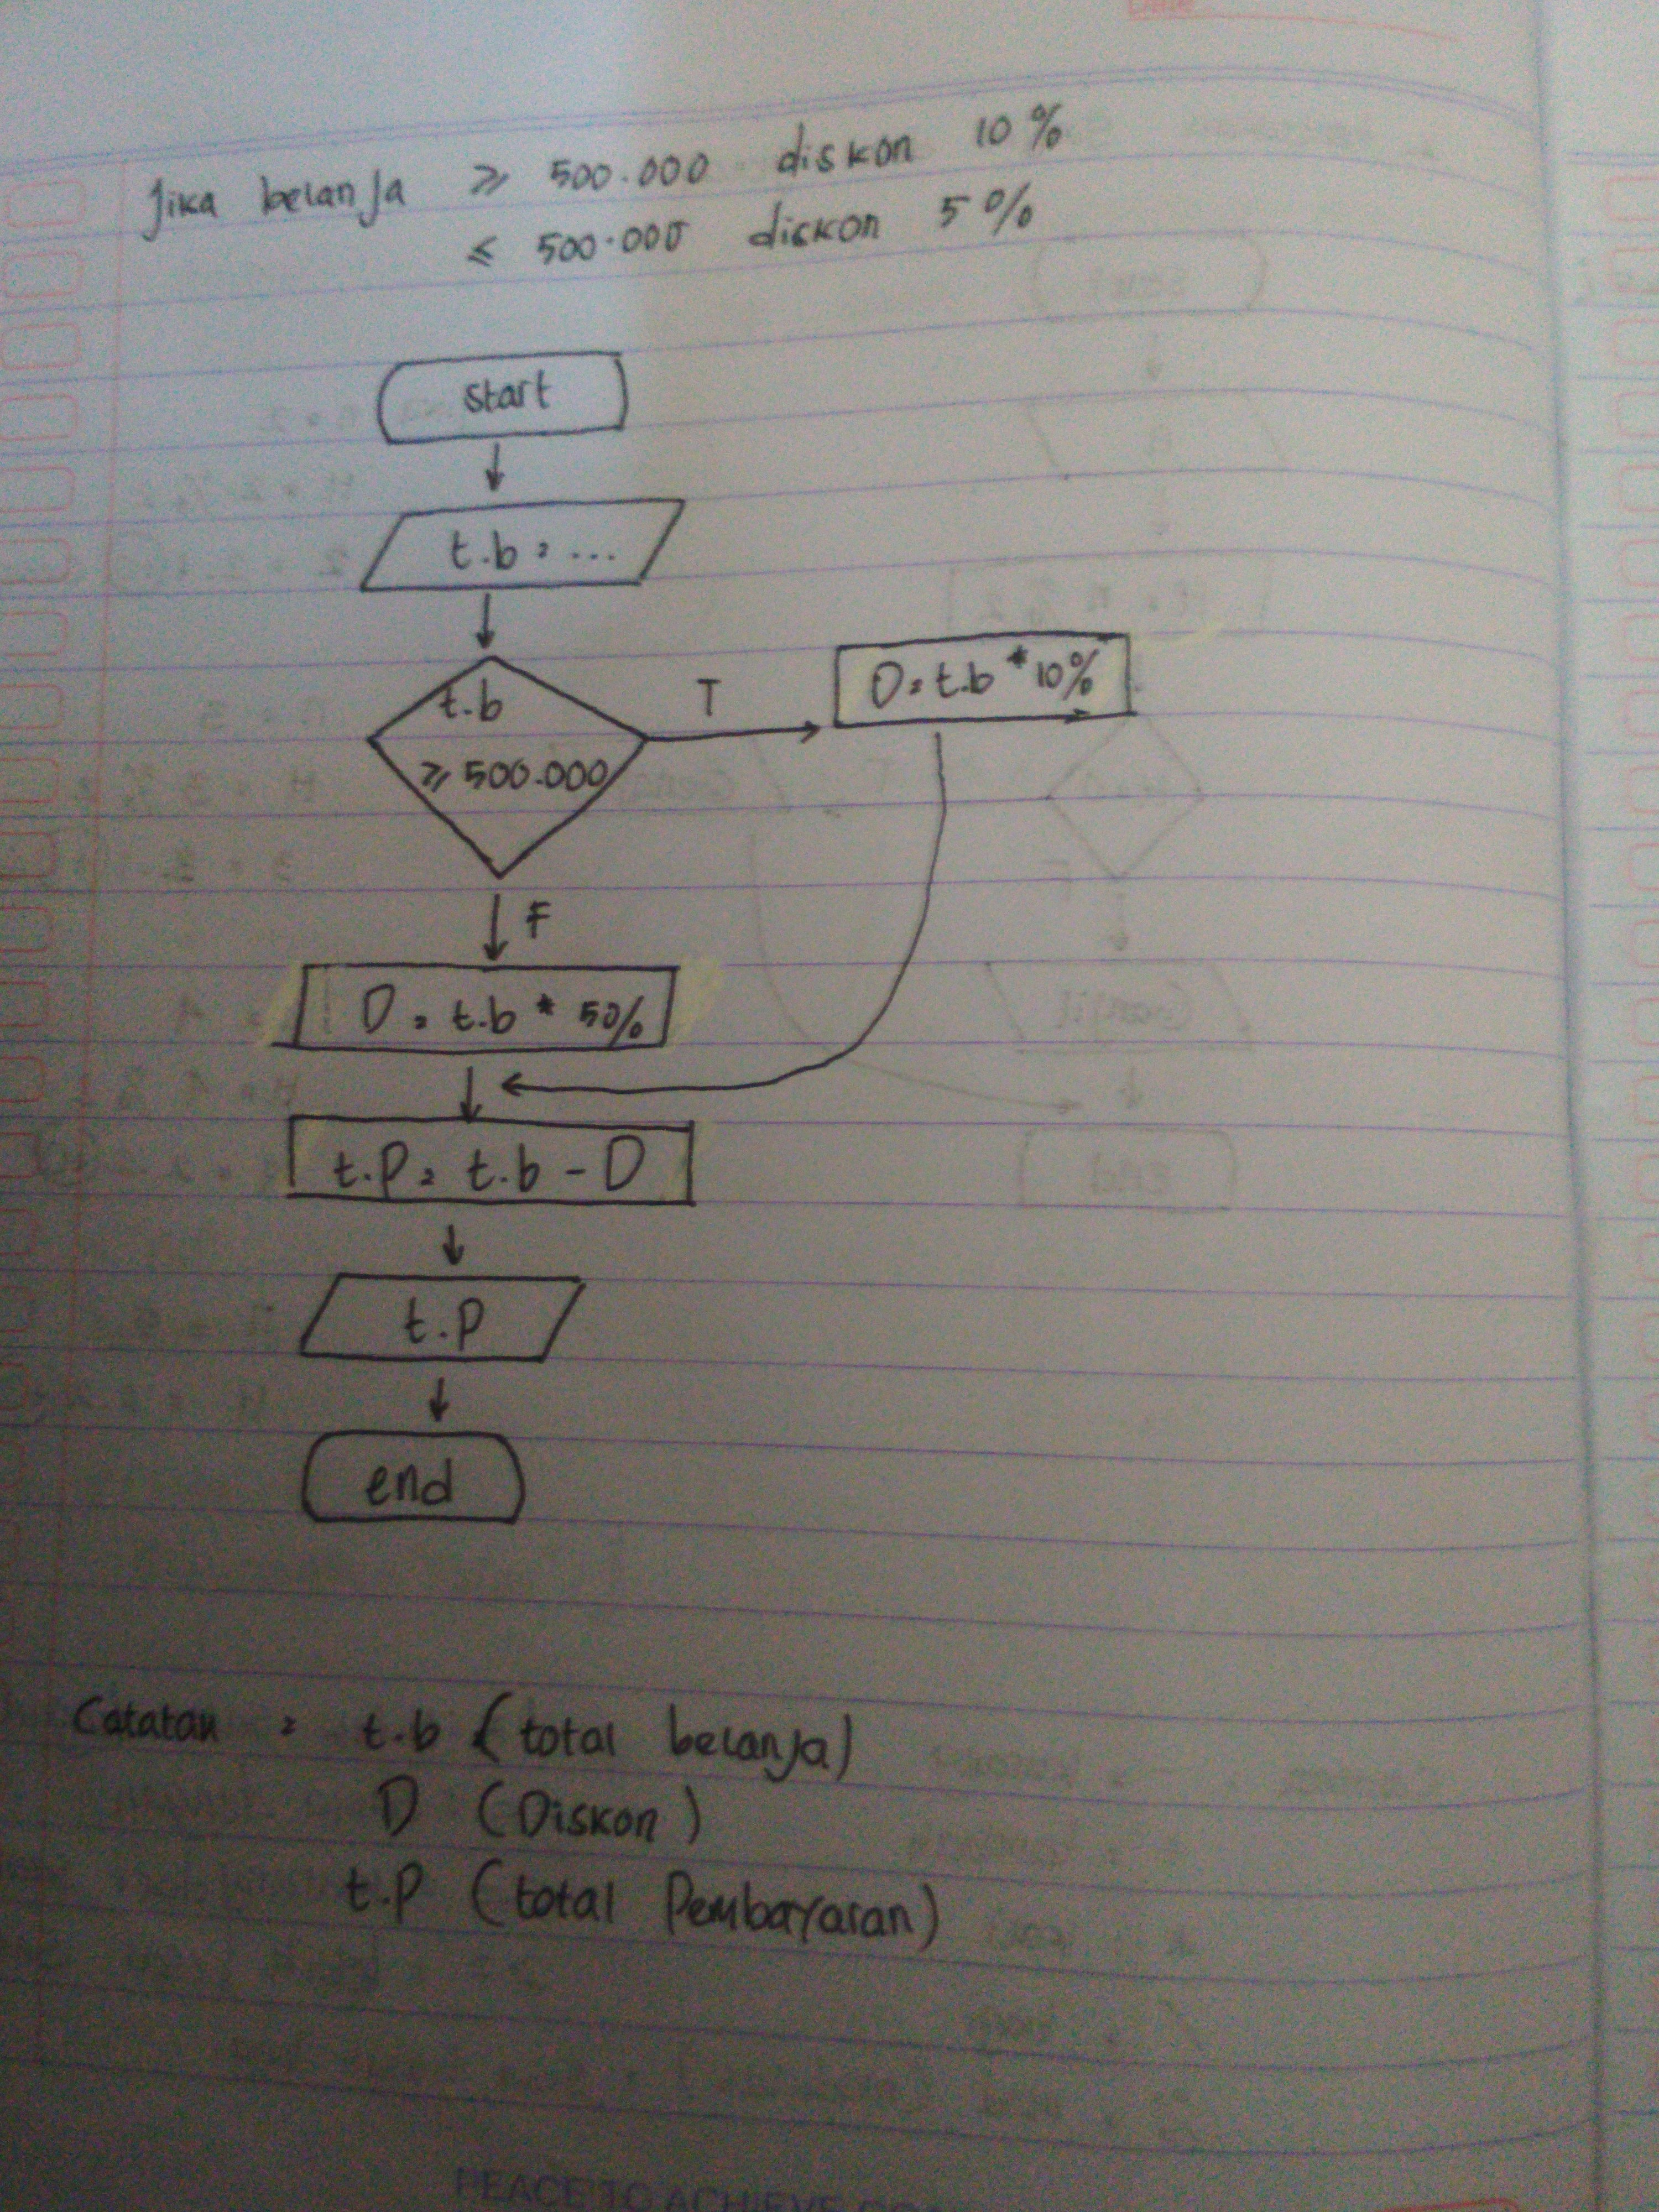 Jika belanja ≥ 500.000 diskon 10%
≤ 500.000 diskon 5%
start
t.b = ...
t.b
≥ 500.000
T
D = t.b * 10%
F
D = t.b * 5%
t.p = t.b - D
t.p
end
Catatan = t.b (total belanja)
D (Diskon)
t.p (total Pembayaran)
PEACE TO ACHIEVE